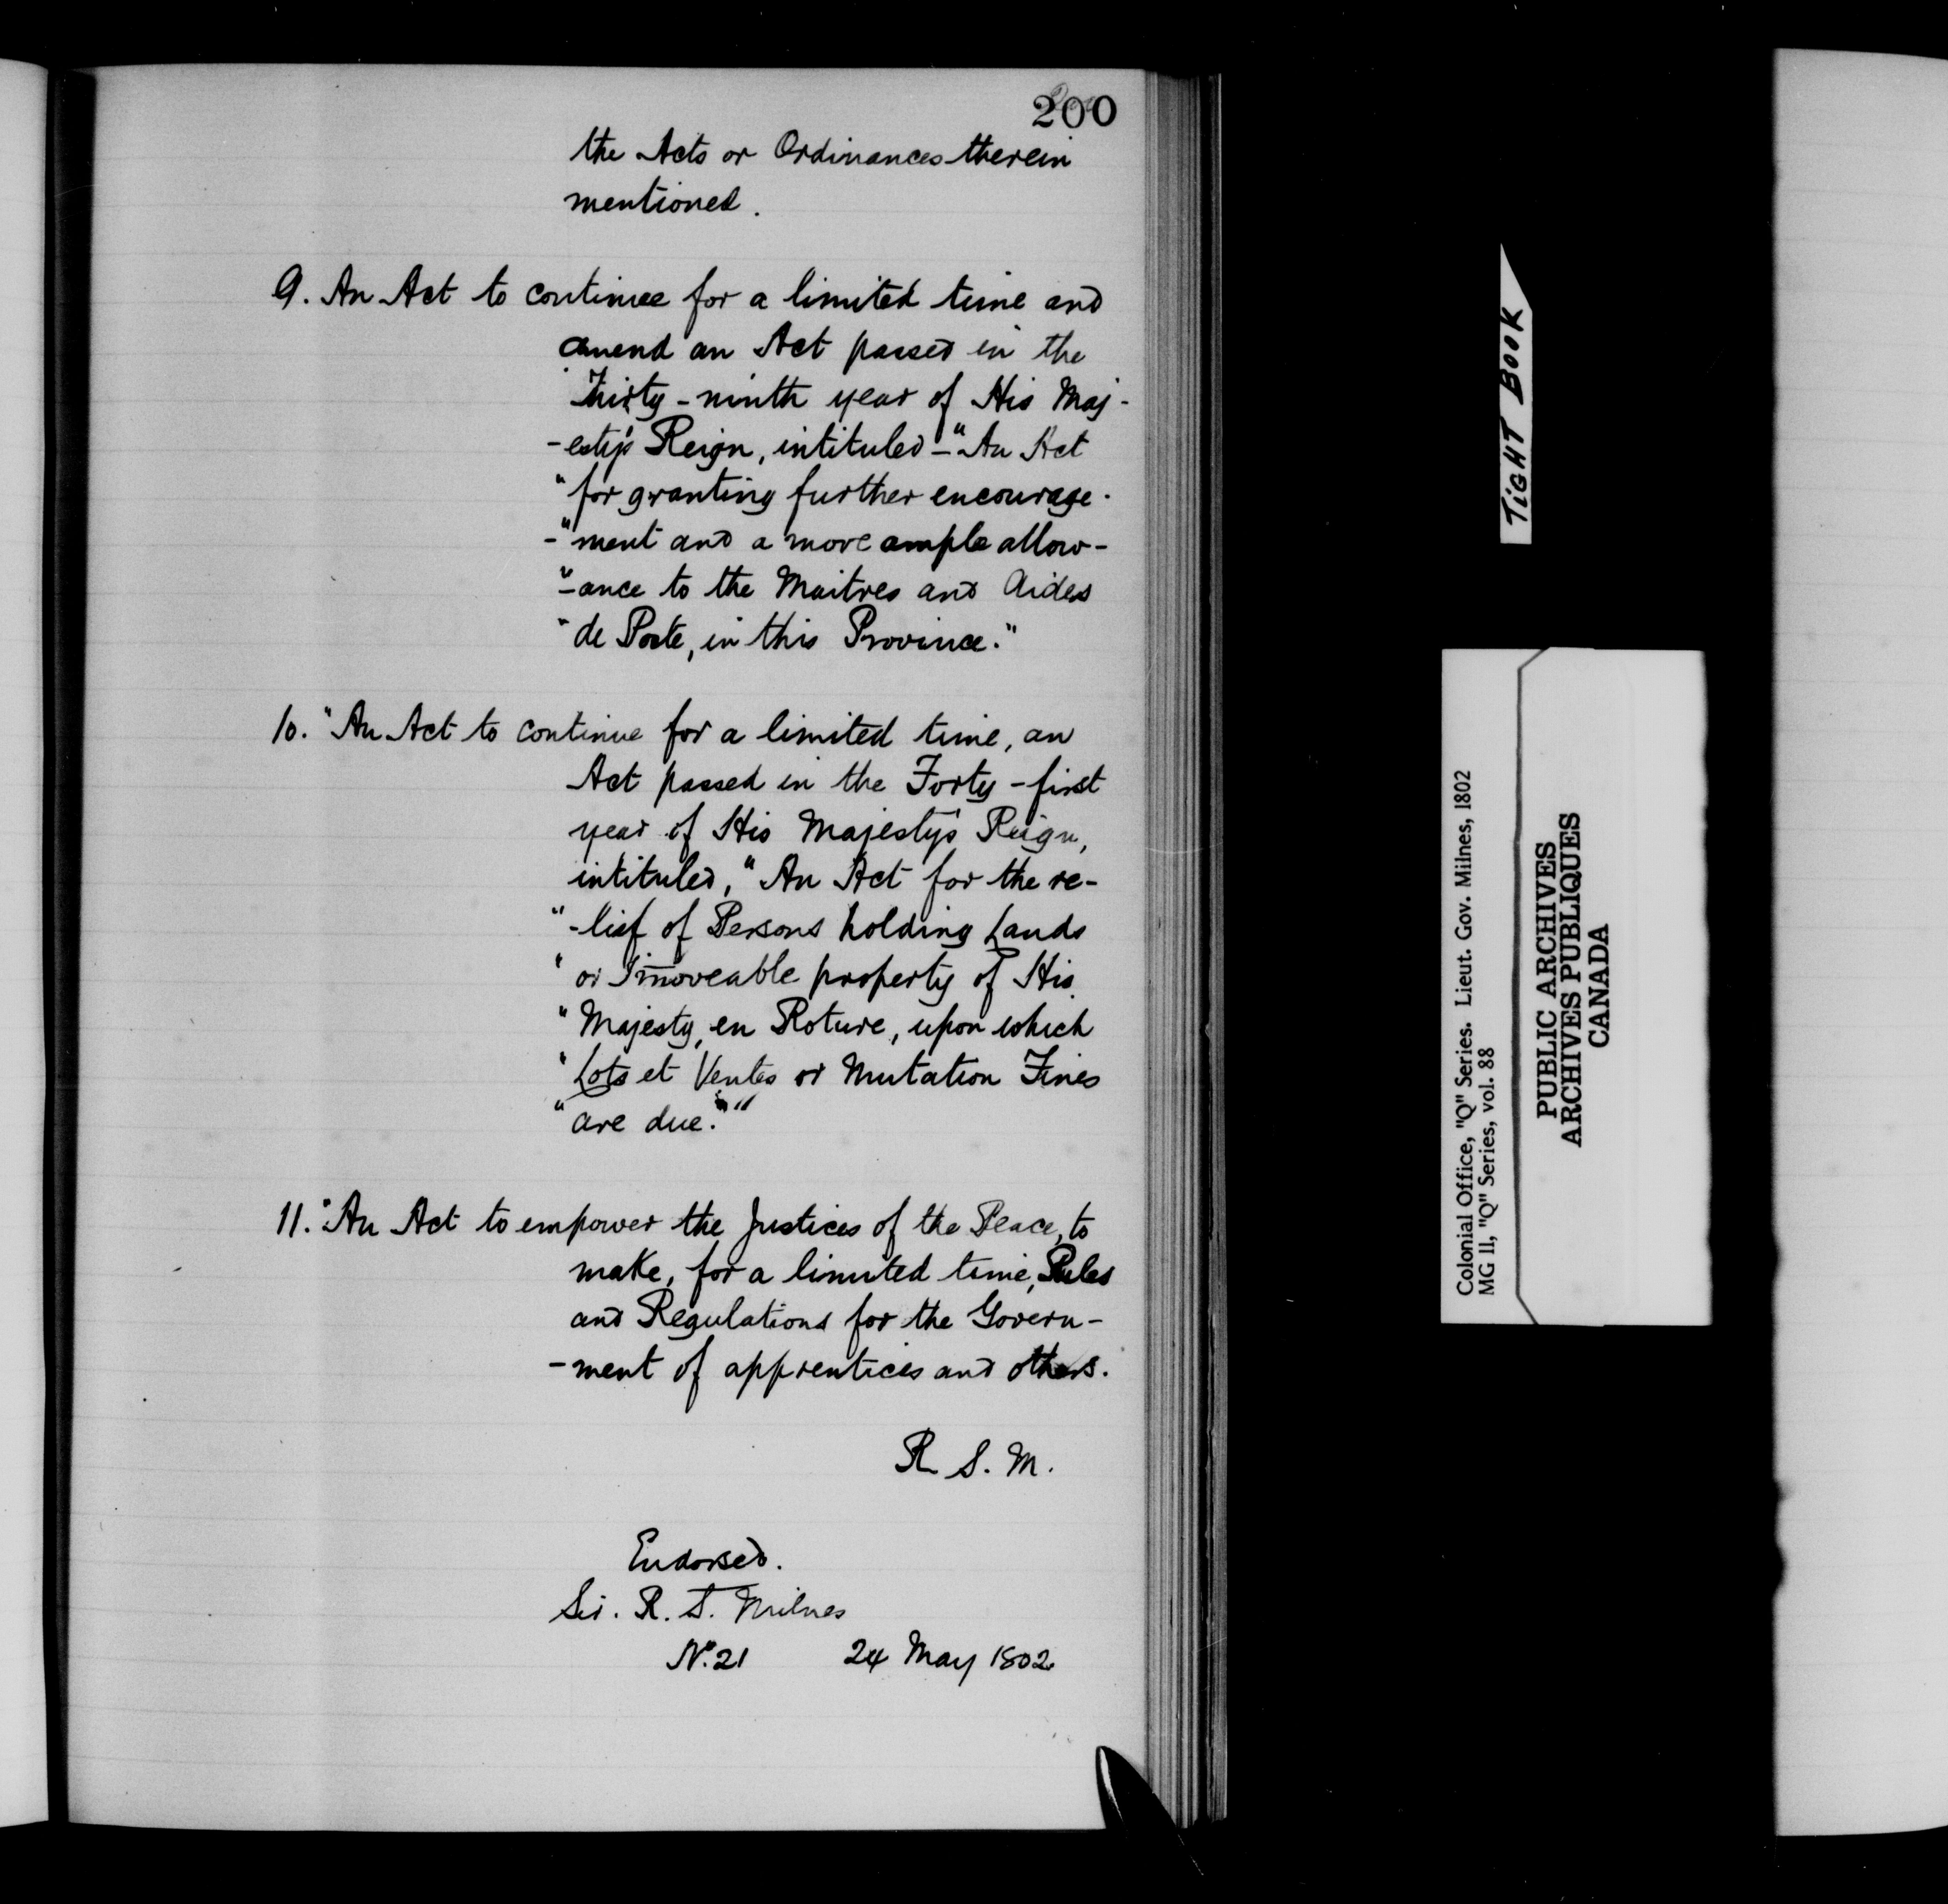 200
the Acts or Ordinances therein
mentioned.
9. An Act to continue for a limited time and
amend an Act passed in the
Thirty-ninth year of His Maj-
-esty's Reign, intituled - "An Act
"for granting further encourage-
-"ment and a more ample allow-
"-ance to the Maitres and Aides
"de Poste, in this Province."
10. "An Act to continue for a limited time, an
Act passed in the Forty-first
year of His Majesty's Reign,
intituled, "An Act for the re-
"-lief of Persons holding Lands
"or Immoveable property of His
"Majesty, en Roture, upon which
"Lots et Ventes or Mutation Fines
"are due.""
11. "An Act to empower the Justices of the Peace, to
make, for a limited time, Rules
and Regulations for the Govern-
-ment of apprentices and others.
R. S. M.
Endorsed.
Sir. R. S. Milnes
No. 21 24 May 1802
TIGHT BOOK
Colonial Office, "Q" Series. Lieut. Gov. Milnes, 1802
MG 11, "Q" Series, vol. 88
PUBLIC ARCHIVES
ARCHIVES PUBLIQUES
CANADA